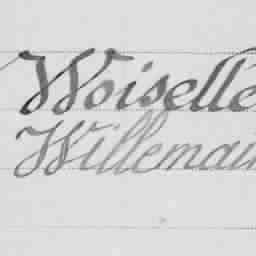 Woiselle
Willemain